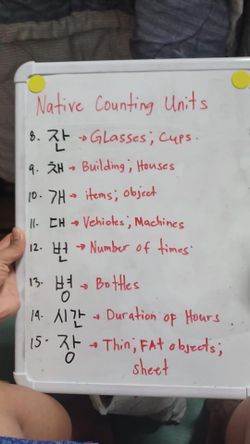 Native Counting Units
8. 잔 → Glasses; Cups.
9. 채 → Building; Houses
10. 개 → items; object
11. 대 → Vehicles; Machines
12. 번 → Number of times
13. 병 → Bottles
14. 시간 → Duration of Hours
15- 장 → Thin; FAt objects;
sheet